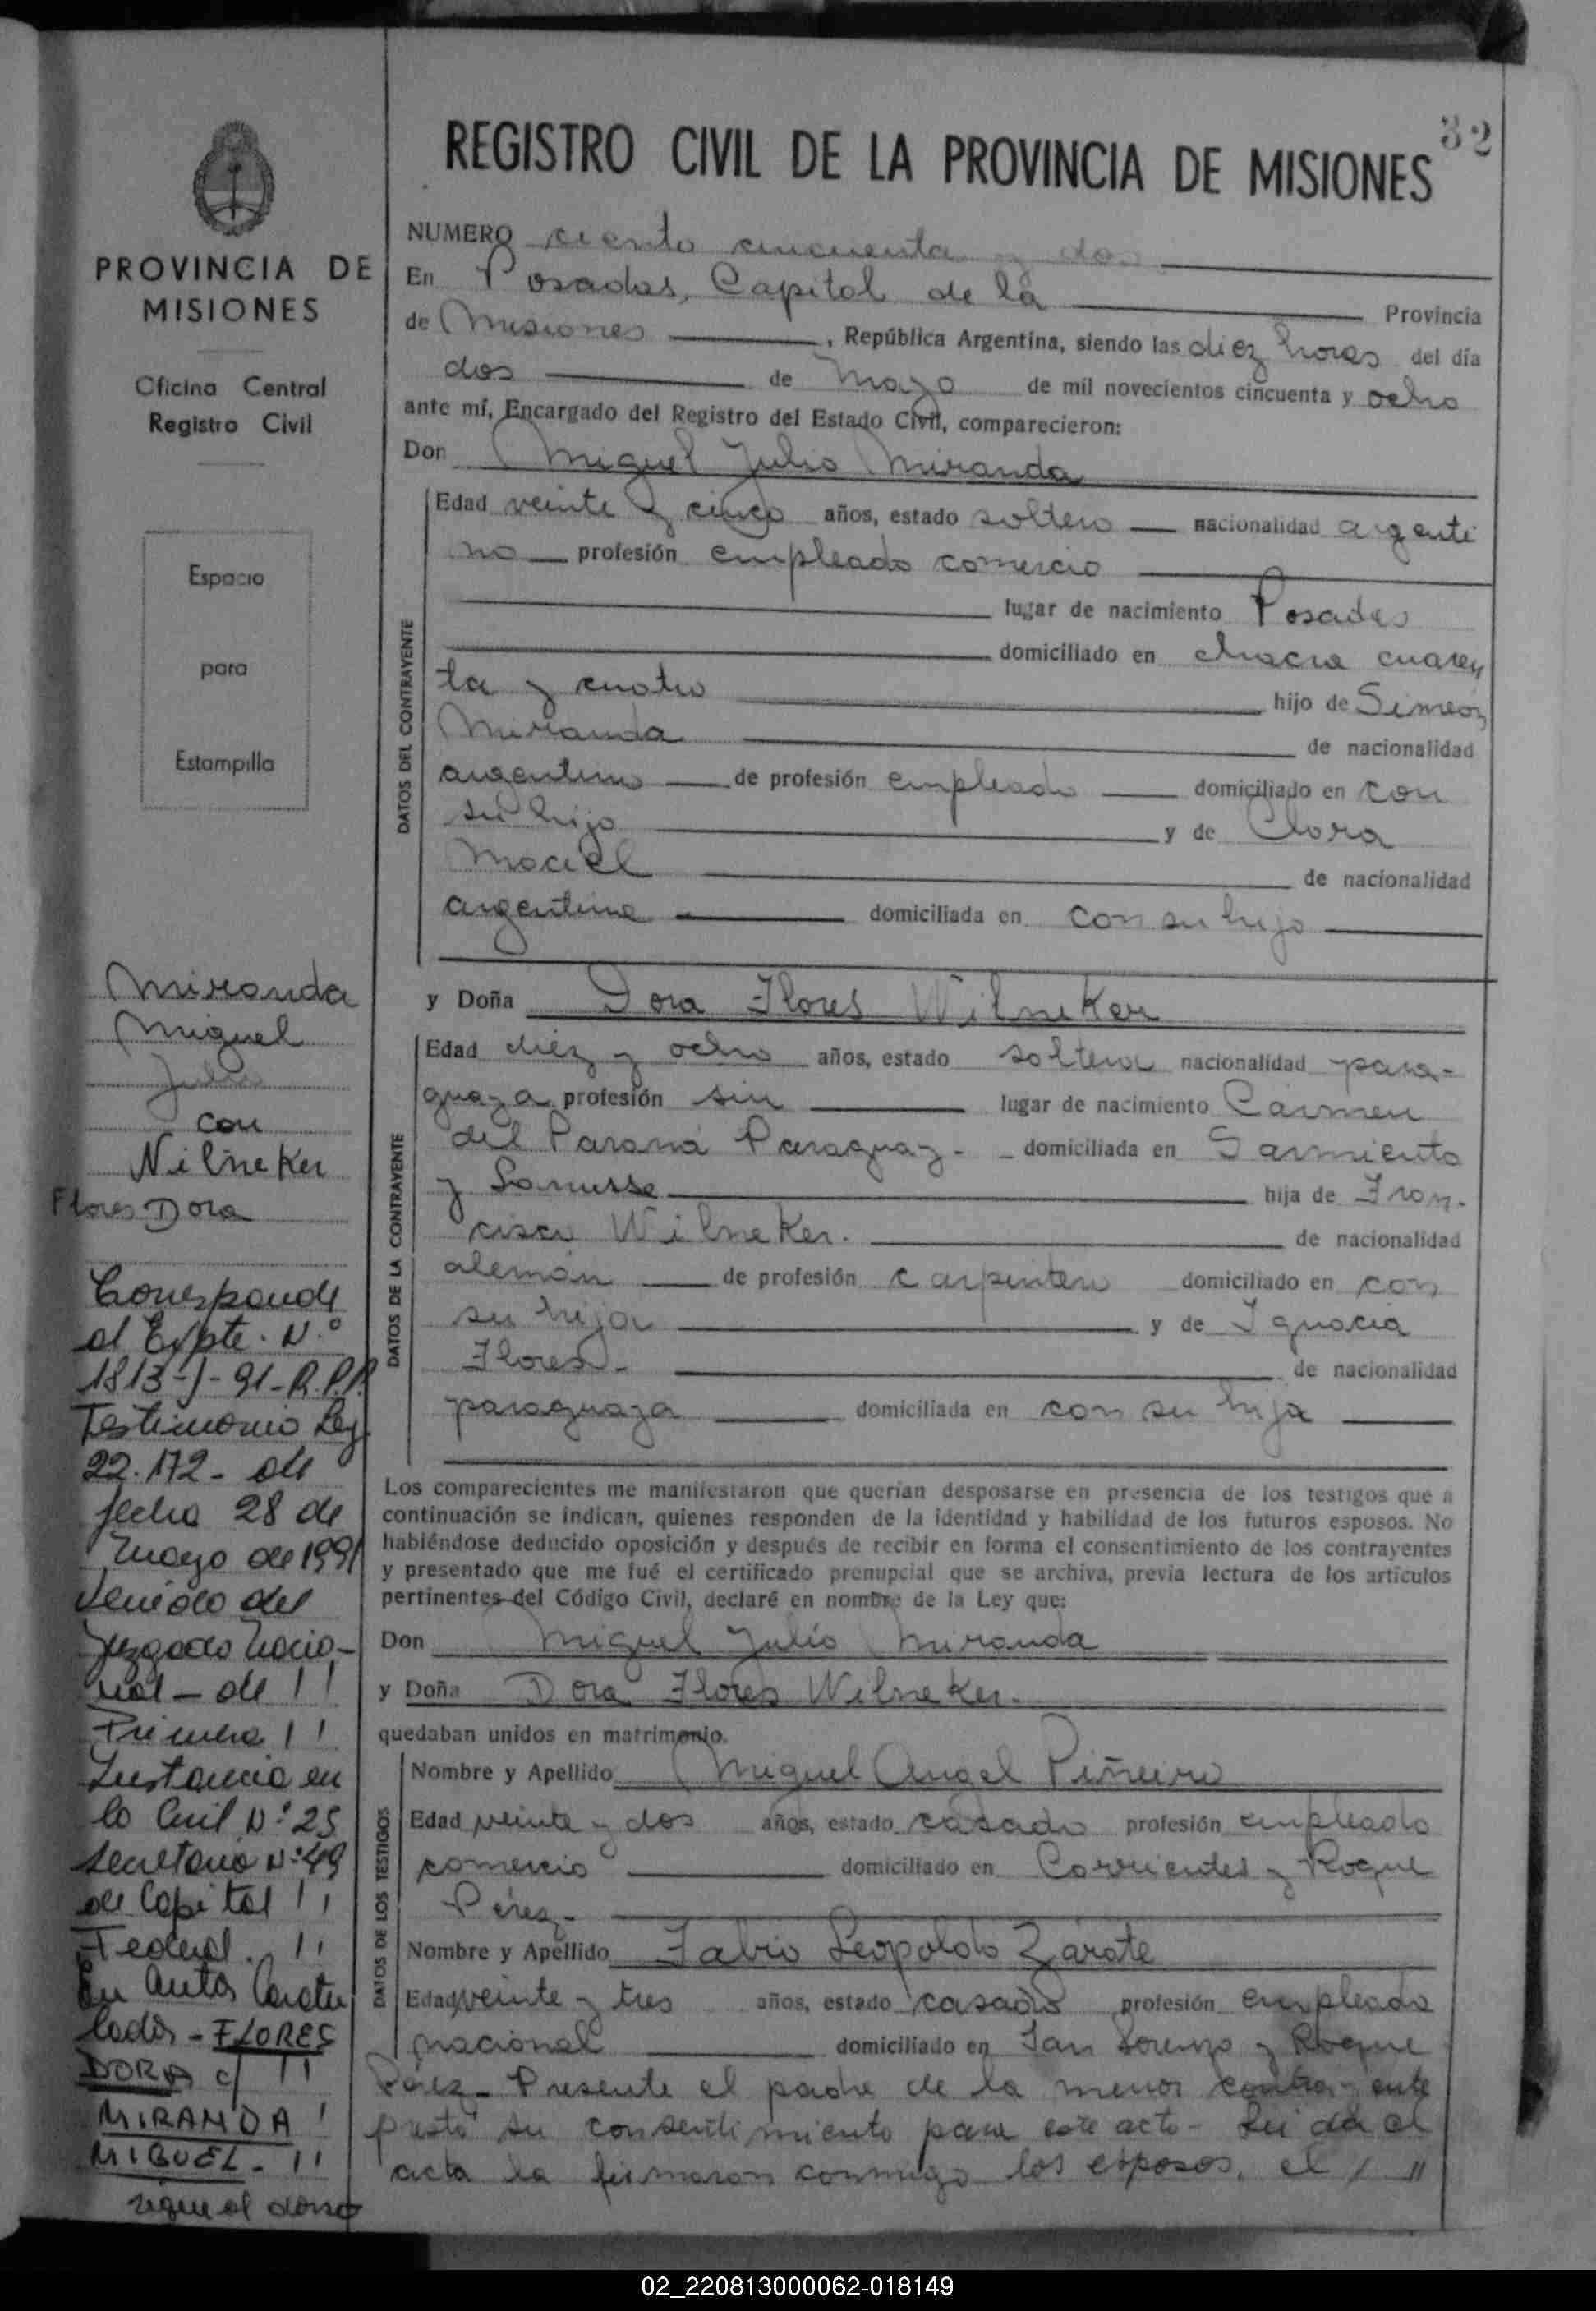 32
REGISTRO CIVIL DE LA PROVINCIA DE MISIONES
PROVINCIA DE
MISIONES
Oficina Central
Registro Civil
Espacio
para
Estampilla
Miranda
Miguel
Julio
con
Wilneker
Flores Dora
Corresponde
al Expte. N.º
1813-J-91-R.P.P.
Testimonio Ley
22.172 - de
fecha 28 de
mayo de 1991
venido del
Juzgado Nacio-
nal - de !!
Primera !!
Instancia en
lo Civil Nº 25
Secretaria Nº 49
de Capital !!
Federal. !!
En autos caratu
lados - FLORES
DORA c/ !!
MIRANDA !
MIGUEL - !!
sigue al dorso
NUMERO ciento cincuenta y dos
En Posadas, Capital de la Provincia
de Misiones, República Argentina, siendo las diez horas del día
dos de Mayo de mil novecientos cincuenta y ocho
ante mí, Encargado del Registro del Estado Civil, comparecieron:
Don Miguel Julio Miranda
DATOS DEL CONTRAYENTE
Edad veinte y cinco años, estado soltero nacionalidad argenti
no profesión empleado comercio
lugar de nacimiento Posadas
domiciliado en chacra cuaren
ta y cuatro hijo de Simeón
Miranda de nacionalidad
argentino de profesión empleado domiciliado en con
su hijo y de Clara
Maciel de nacionalidad
argentina domiciliada en con su hijo
y Doña Dora Flores Wilneker
DATOS DE LA CONTRAYENTE
Edad diez y ocho años, estado soltera nacionalidad para-
guaya profesión sin lugar de nacimiento Carmen
del Paraná Paraguay - domiciliada en Sarmiento
y Lanusse hija de Fran-
cisco Wilneker. de nacionalidad
alemán de profesión carpintero domiciliado en con
su hija y de Ignacia
Flores - de nacionalidad
paraguaya domiciliada en con su hija
Los comparecientes me manifestaron que querían desposarse en presencia de los testigos que a
continuación se indican, quienes responden de la identidad y habilidad de los futuros esposos. No
habiéndose deducido oposición y después de recibir en forma el consentimiento de los contrayentes
y presentado que me fué el certificado prenupcial que se archiva, previa lectura de los artículos
pertinentes del Código Civil, declaré en nombre de la Ley que:
Don Miguel Julio Miranda
y Doña Dora Flores Wilneker.
quedaban unidos en matrimonio.
DATOS DE LOS TESTIGOS
Nombre y Apellido Miguel Angel Piñeiro
Edad veinte y dos años, estado casado profesión empleado
comercio domiciliado en Corrientes y Roque
Pérez -
Nombre y Apellido Fabio Leopoldo Zárate
Edad veinte y tres años, estado casado profesión empleado
nacional domiciliado en San Lorenzo y Roque
Pérez - Presente el padre de la menor contrayente
prestó su consentimiento para este acto - Leída el
acta la firmaron conmigo los esposos, el / "
02_220813000062-018149